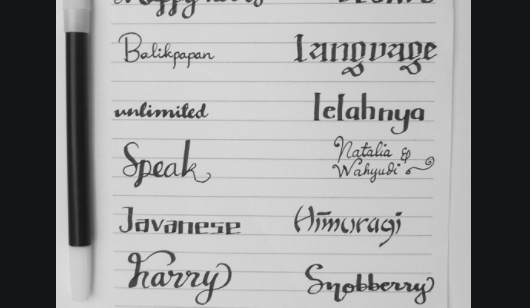 Balikpapan
language
unlimited
lelahnya
Speak
Natalia &
Wahyudi
Javanese
Himuragi
harry
Snobberry